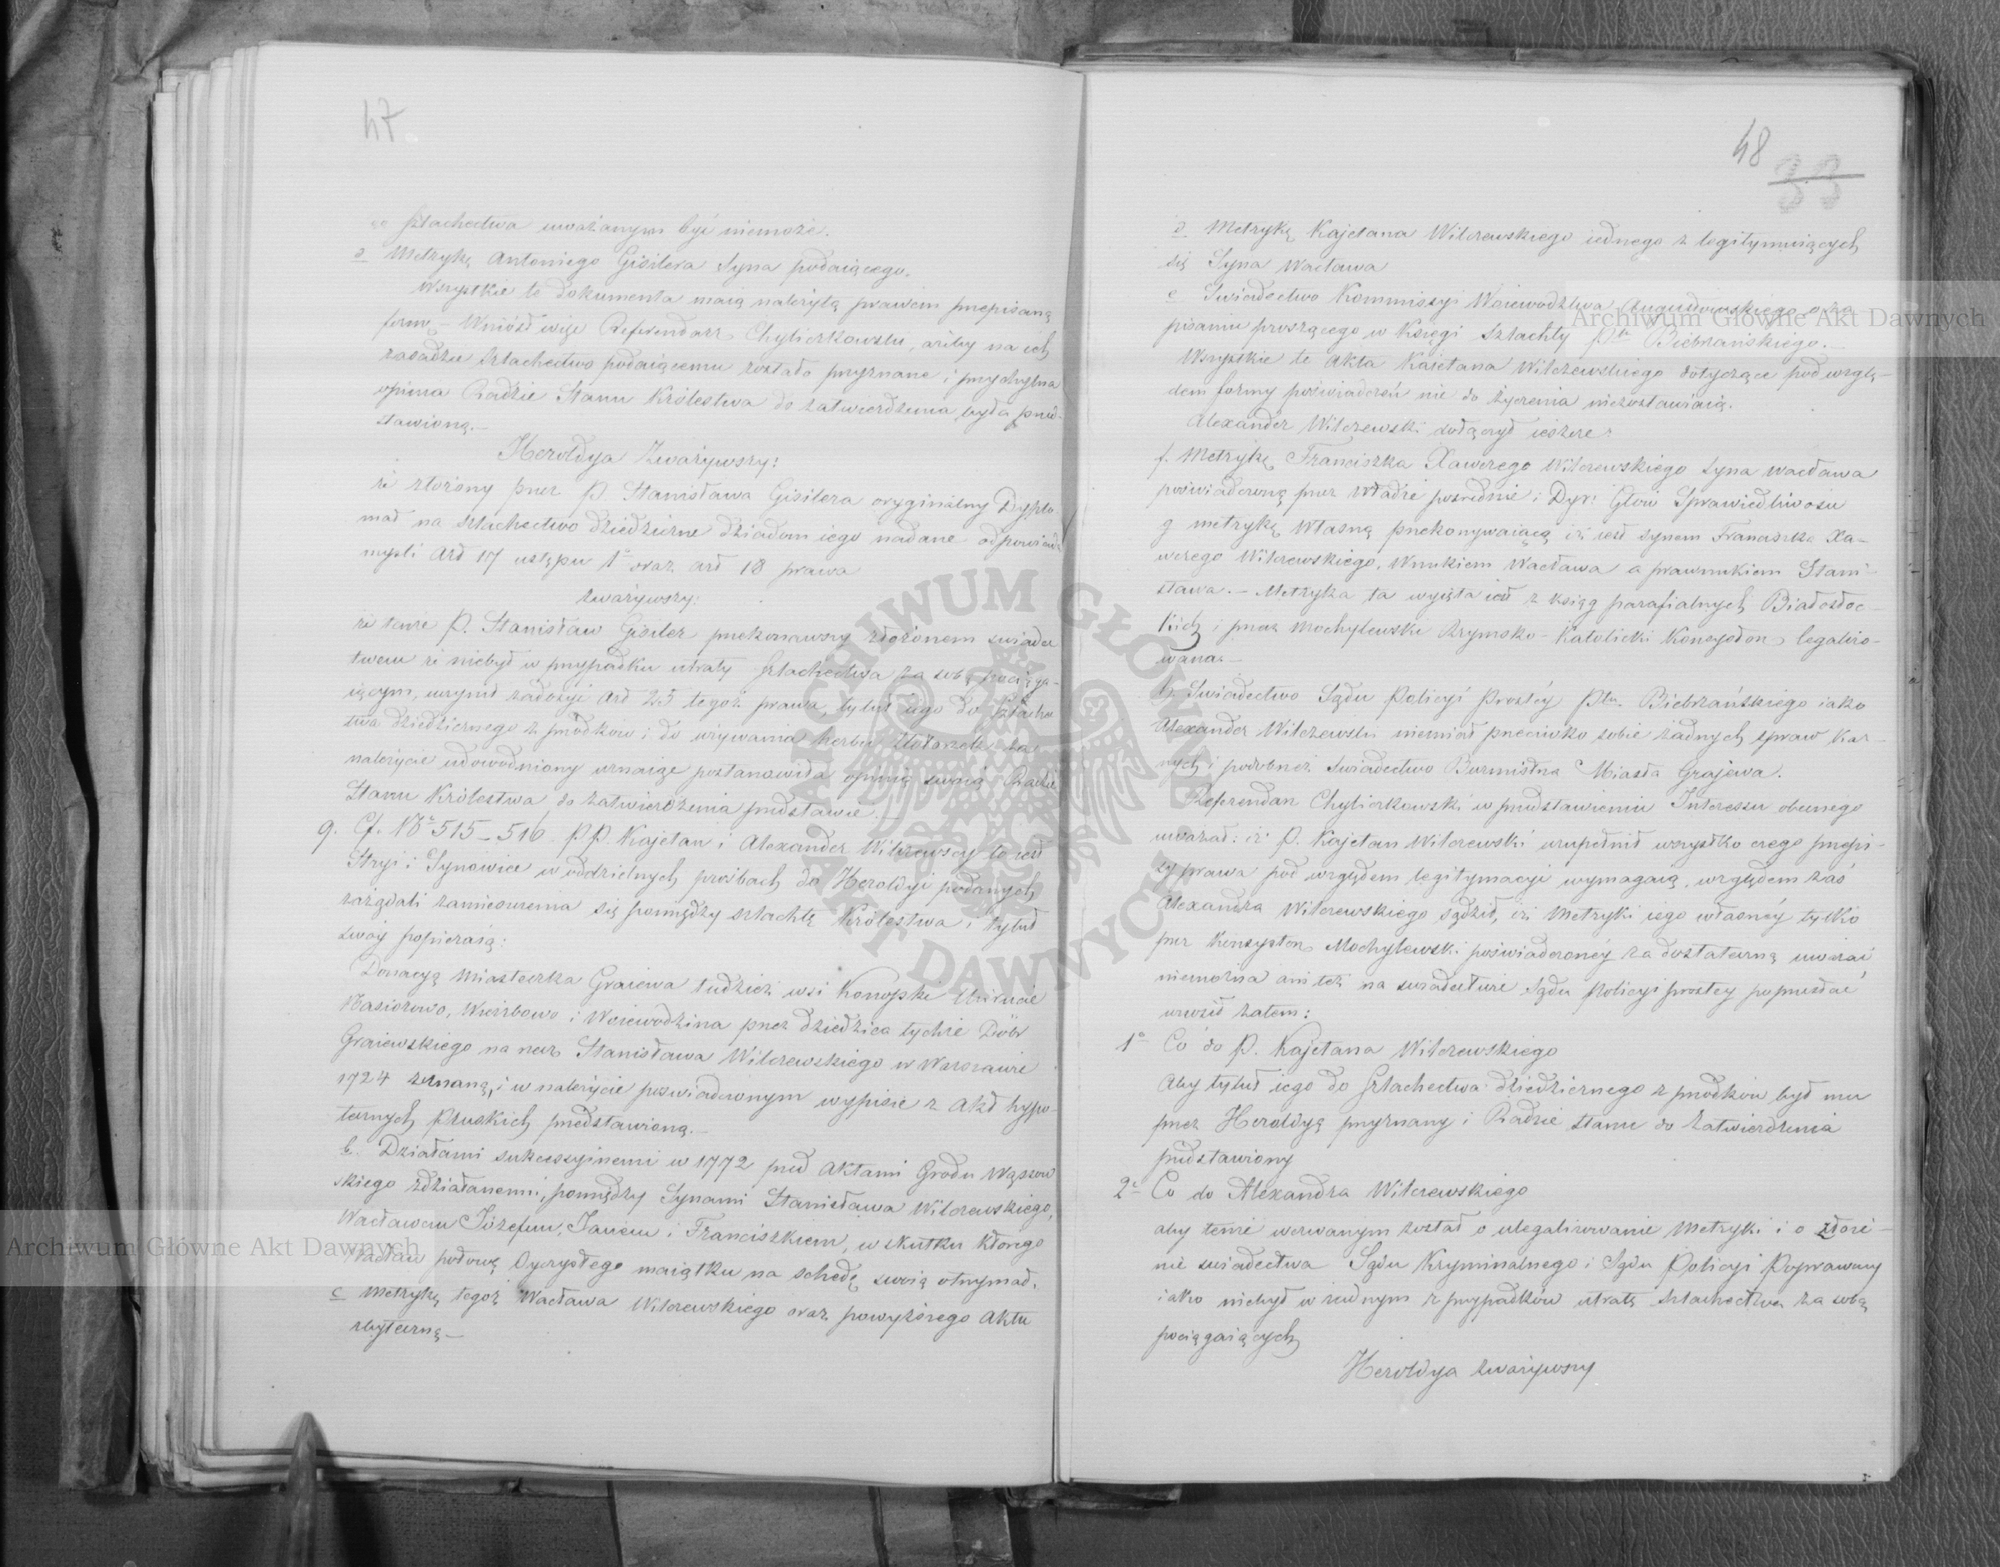 47
szlachectwa uważanym być niemoże.
d Metrykę Antoniego Gisilera Syna podaiącego.
Wszystkie te dokumenta maią należytą prawem przepisaną
formę – Wniósł więc Referendarz Chyliczkowski, ażeby na ich
zasadzie Szlachectwo podaiącemu zostało przyznane i przychylna
opinia Radzie Stanu Królestwa do zatwierdzenia była przed-
stawioną.–
Heroldya Zważywszy:
że złożony przez P. Stanisława Gisilera oryginalny Dyplo-
mat na szlachectwo dziedziczne dziadom iego nadane odpowiada
myśli Art 17 ustępu 1° oraz art 18 prawa
zważywszy:
że tenże P. Stanisław Gisiler przekonawszy złożonem świadec
twem że niebył w przypadku utraty Szlachectwa za sobą pociąga-
iącym, uczynił zadosyć Art 25 tegoż prawa, tytuł iego do Szlachec
twa dziedzicznego z przodków i do używania herbu za
należycie udowodniony uznaiąc postanowiła opinią swoią Radzie
Stanu Królestwa do zatwierdzenia przedstawić.–
9. Cf. No 515–516. P.P. Kajetan i Alexander Wilczewscy to iest
Stryi i Synowiec w oddzielnych prośbach do Heroldyi podanych
zażądali zamieszczenia się pomiędzy szlachtę Królestwa i tytuł
swóy popieraią:
Donacyą Miasteczka Graiewa tudzież wsi Konopki
Kasiorowo, Wierzbowo i Woiewodzina przez dziedzica tychże Dóbr
Graiewskiego na rzecz Stanisława Wilczewskiego w Warszawie
1724 zeznaną, i w należycie poświadczonym wypisie z Akt hypo-
tecznych Pruskich przedstawioną.–
b. Działami sukcessyinemi w 1772 przed Aktami Grodu Wąsow
skiego zdziałanemi, pomiędzy Synami Stanisława Wilczewskiego,
Wacławem Józefem, Janem i Franciszkiem, w skutku którego
Wacław połowę Oyczystego maiątku na schedę swoią otrzymał.
c Metrykę tegoż Wacława Wilczewskiego oraz powyższego Aktu
zbyteczną –
48
33
d. Metrykę Kajetana Wilczewskiego iednego z legitymuiących
się Syna Wacława
e Swiadectwo Kommissyi Woiewodztwa Augustowskiego o za
pisaniu proszącego w Księgi Szlachty Ptu Biebrzańskiego.–
Wszystkie te Akta Kaietana Wilczewskiego dotyczące pod wzglę-
dem formy poświadczeń nic do życzenia niezostawiaią.
Alexander Wilczewski dołączył ieszcze:
f. Metrykę Franciszka Xawerego Wilczewskiego Syna Wacława
poświadczoną przez Władze pośrednie i Dyr: Głów Sprawiedliwości
g metrykę własną przekonywaiącą iż iest synem Franciszka Xa-
werego Wilczewskiego, Wnukiem Wacława a prawnukiem Stani-
sława.– Metryka ta wyięta iest z ksiąg parafialnych Białostoc-
kich i przez Mochylewski Rzymsko-Katolicki Konsystorz legalizo-
wana.–
h. Swiadectwo Sądu Policyi Prostéy Ptu Biebrzańskiego iako
Alexander Wilczewski niemiał przeciwko sobie żadnych spraw Kar-
nych i podobneż Swiadectwo Burmistrza Miasta Grajewa.
Referendarz Chyliczkowski w przedstawieniu Interessu obecnego
uważał: iż P. Kajetan Wilczewski uzupełnił wszystko czego przepi-
sy prawa pod względem legitymacyi wymagaią, względem zaś
Alexandra Wilczewskiego sądził, iż Metryki iego własnéy tylko
przez Konsystorz Mochylewski poświadczonéy za dostateczną uważać
niemożna ani też na świadectwie Sądu Policyi prostéy poprzestać
wnosił zatem:
1° Co do P. Kajetana Wilczewskiego
Aby tytuł iego do Szlachectwa dziedzicznego z przodków był mu
przez Heroldyą przyznany i Radzie Stanu do zatwierdzenia
przedstawiony
2° Co do Alexandra Wilczewskiego
aby tenże wezwanym został o ulegalizowanie Metryki i o złoże-
nie świadectwa Sądu Kryminalnego i Sądu Policyi Poprawczey
iako niebył w żadnym z przypadków utratę szlachectwa za sobą
pociągaiących
Heroldya zważywszy
Archiwum Główne Akt Dawnych
Archiwum Główne Akt Dawnych
ARCHIWUM GŁÓWNE AKT DAWNYCH